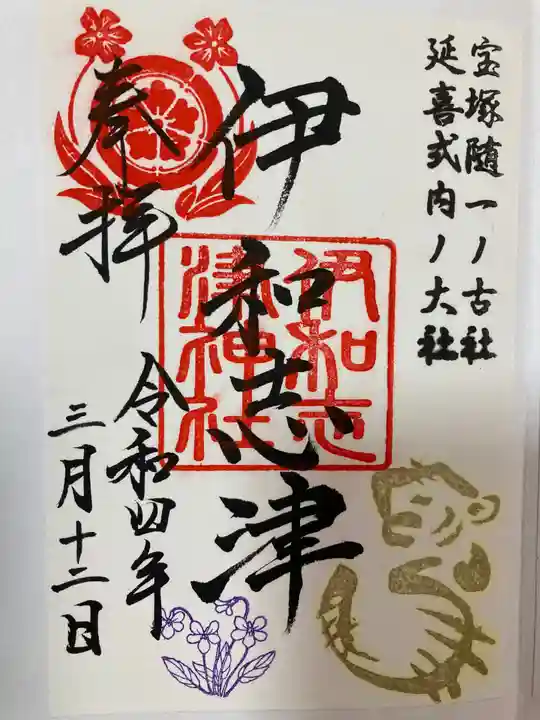 宝塚随一ノ古社
延喜式内ノ大社
伊和志津
伊和志
津神社
奉拝
令和四年
三月十二日